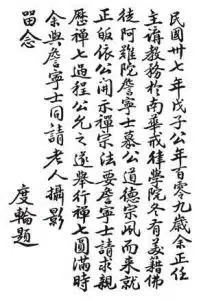 民國卅七年戊子公年百零九歲余正任
主講教務於南華戒律學院冬有美籍佛
徒阿難院詹寧士慕公道德宗風而來就
正皈依公開示禪宗法要詹寧士請求親
歷禪七過程公允之遂舉行禪七圓滿時
余與詹寧士同請老人攝影
留念
度輪題